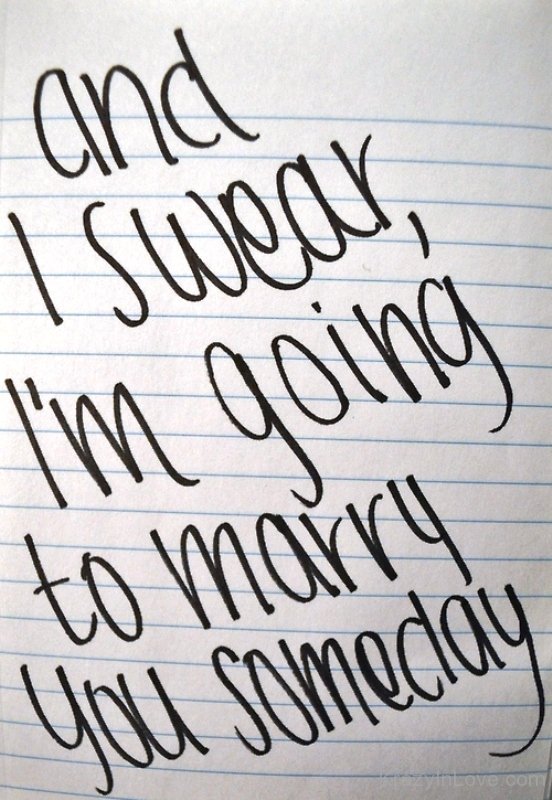 and
I swear,
I'm going
to marry
you someday
KrazyInLove.com